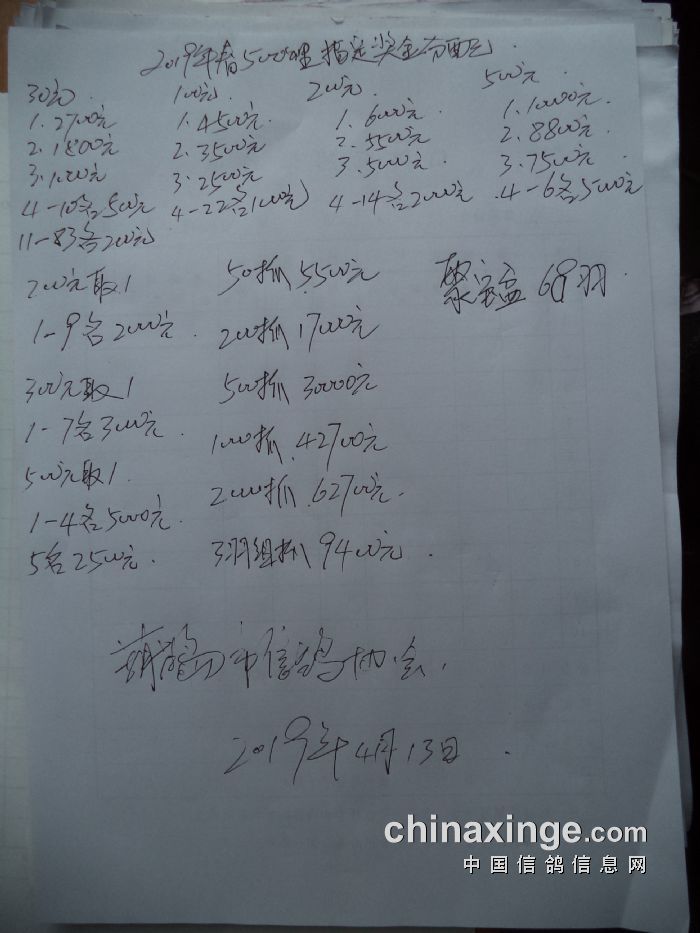 2019年春500公里指定奖金分配
30元 100元 200元 500元
1.2700元 1.4500元 1.6000元 1.10000元
2.1800元 2.3500元 2.5500元 2.8800元
3.1000元 3.2500元 3.5000元 3.7500元
4-10名500元 4-22名1000元 4-14名2000元 4-6名5000元
11-83名200元
200元取1 50抓.5500元 聚宝盆 68羽
1-9名2000元 200抓.17000元
300元取1 500抓 30000元
1-7名3000元 1000抓.42700元
500元取1 2000抓.62700元
1-4名5000元
5名2500元 3羽组抓 9400元
葫芦岛市信鸽协会
2019年4月13日
chinaxinge.com
中国信鸽信息网